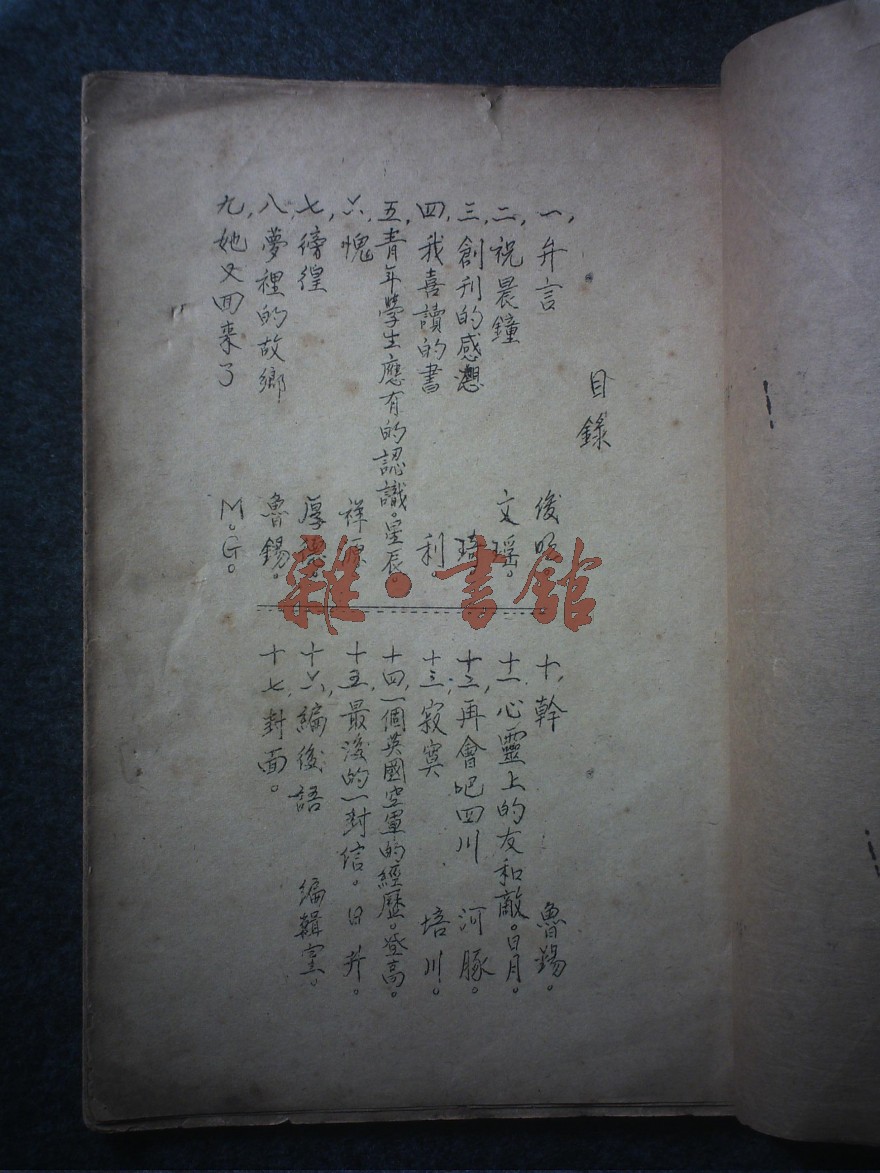 目錄
一，弁言 俊明。
二，祝晨鐘 文瑶。
三，創刊的感想 琦。
四，我喜讀的書 利。
五，青年學生應有的認識。星辰。
六，愧 祥源
七，徬徨 厚德。
八，夢裡的故鄉 魯錫。
九，她又回来了 M。G。
十，幹 魯錫。
十一，心靈上的友和敵。日月。
十二，再會吧四川 河豚。
十三，寂寞 培川。
十四，一個英國空軍的經歷。登高。
十五，最後的一封信。日升。
十六，編後語 編輯室。
十七，封面。
雜·書館